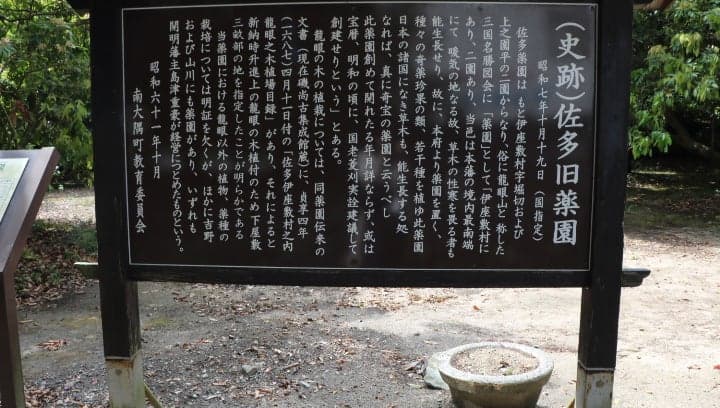 (史跡)佐多旧薬園
昭和七年十月十九日 (国指定)
佐多薬園は もと伊座敷村字堀切および
上之園平の二園からなり、俗に龍眼山と称した
三国名勝図会に「薬園」として「伊座敷村に
あり、二園あり、当邑は本藩の境内最南端
にて 暖気の地なる故、草木の性寒を畏る者も
能生長せり、故に、本府より薬園を置く、
種々の奇薬珍果の類、若干種を植ゆ此薬園
日本の諸国になき草木も、能生長する処
なれば、真に奇宝の薬園と云うべし
此薬園創めて開れたる年月詳ならず、或は
宝暦、明和の頃に、国老菱刈実詮建議して
創建せりという」とある。
龍眼の木の植栽については、同薬園伝来の
文書(現在磯尚古集成館蔵)に、貞享四年
(一六八七)四月十一日付の「佐多伊座敷村之内
龍眼之木植場目録」があり、それによると
新納時升進上の龍眼の木植付のため下屋敷
三畝部の地を指定したことが明らかである
当薬園における龍眼以外の植物、薬種の
栽培については明証を欠くが、ほかに吉野
および山川にも薬園があり、いずれも
開明藩主島津重豪が経営につとめたものという。
昭和六十一年十月
南大隅町教育委員会